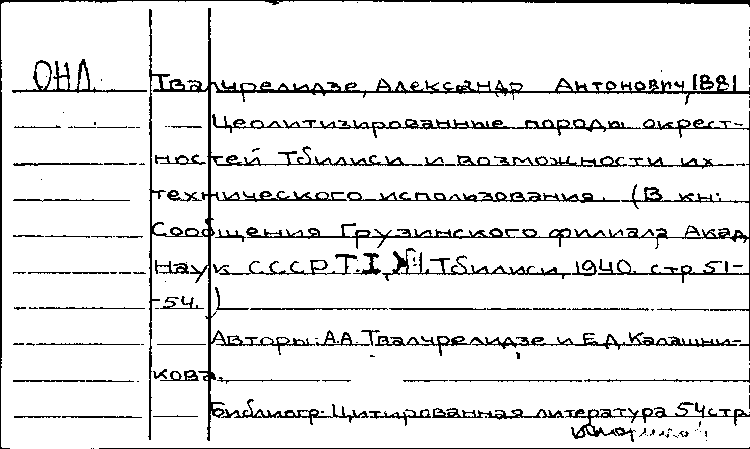 ОНЛ Твалчрелидзе, Александр Антонович, 1881
Цеолитизированные породы окрест-
ностей Тбилиси и возможности их
технического использования. (В кн:
Сообщения Грузинского филиала Акад.
Наук С.С.С.Р. Т. I, №1. Тбилиси, 1940. стр 51-
-54.)
Авторы: А.А. Твалчрелидзе и Е.Д. Калашни-
кова.
Библиогр. Цитированная литература 54 стр